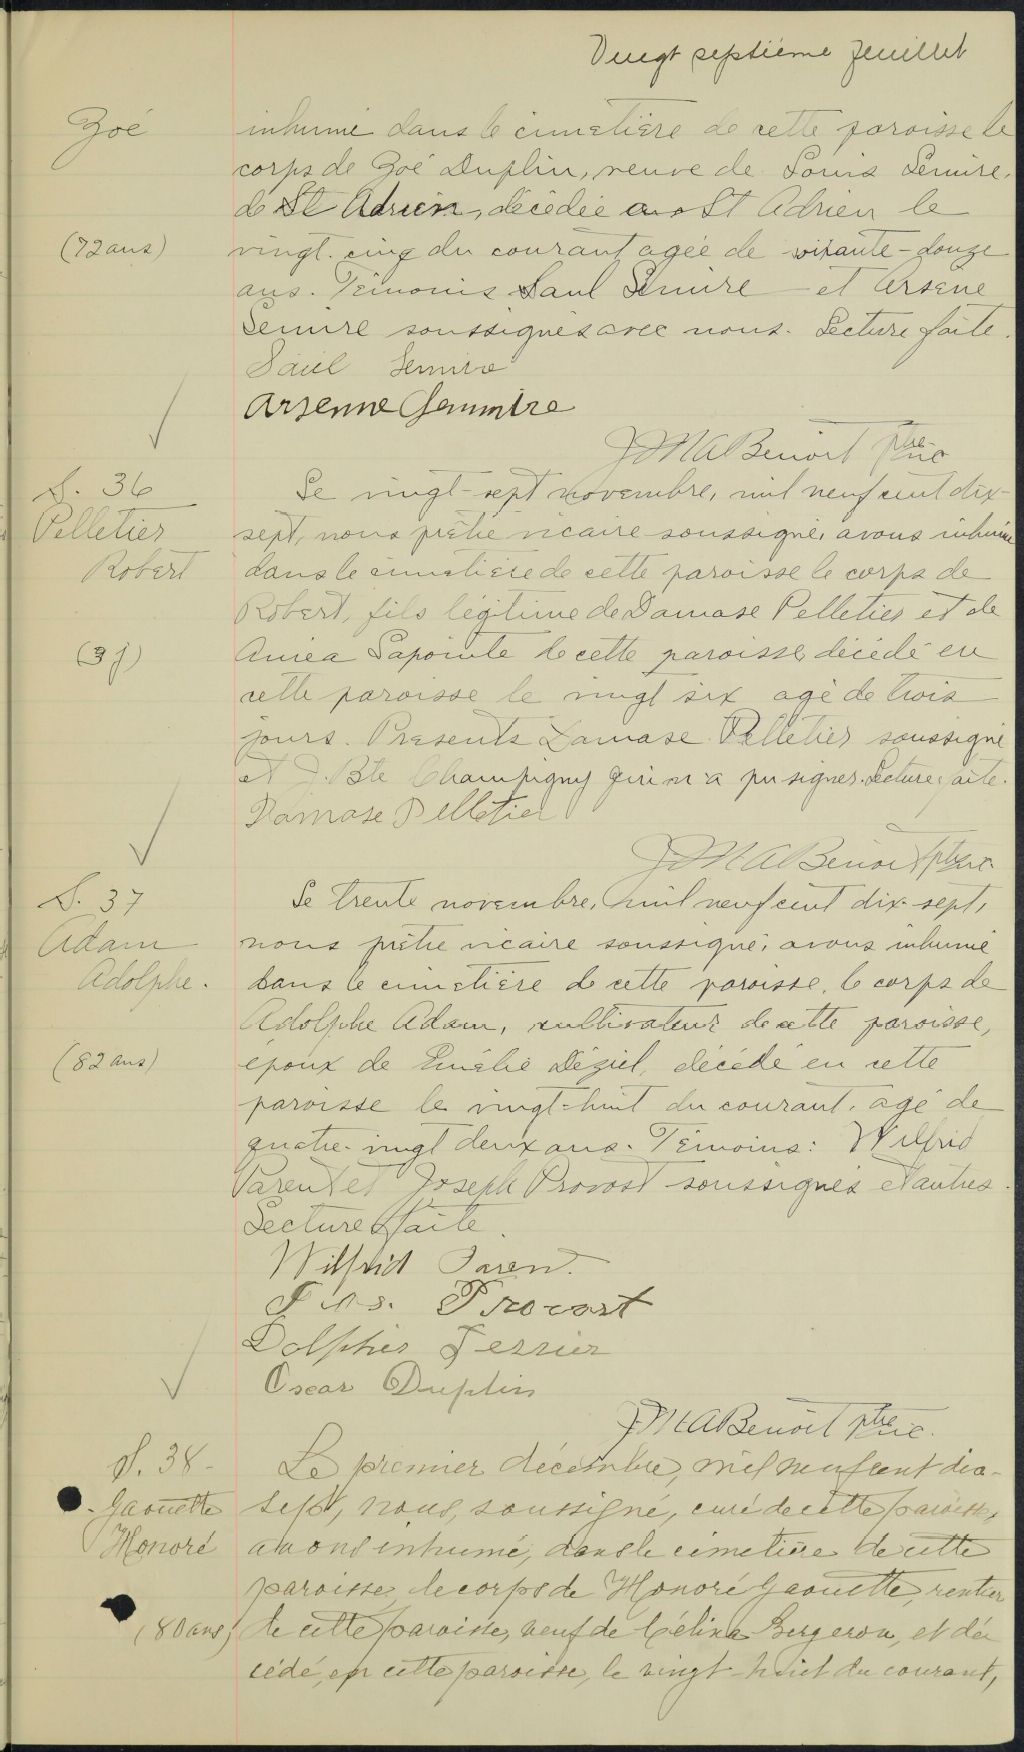 Vingt septième feuillet
Zoé
inhumé dans le cimetière de cette paroisse le
corps de Zoé Duplin, veuve de Louis Lemire,
de St Adrien, décédée à St Adrien le
(72 ans)
vingt-cinq du courant agée de soixante-douze
ans. Témoins Saul Lemire et Arsène
Lemire soussignés avec nous. Lecture faite.
Saül Lemire
Arsenne Lemmire
JMABenoit ptre vic
S. 36
Pelletier
Robert
(3 j)
Le vingt-sept novembre, mil neuf cent dix-
sept, nous prêtre vicaire soussigné, avons inhumé
dans le cimetière de cette paroisse le corps de
Robert, fils légitime de Damase Pelletier et de
Lapointe de cette paroisse, décédé en
cette paroisse le vingt six agé de trois
jours. Presents Damase Pelletier soussigné
et J. Bte Champigny qui n'a pu signer. Lecture faite.
Damase Pelletier
JMABenoit ptre vic
S. 37
Adam
Adolphe.
(82 ans)
Le trente novembre, mil neuf cent dix-sept,
nous prêtre vicaire soussigné, avons inhumé
dans le cimetière de cette paroisse, le corps de
Adolphe Adam, cultivateur de cette paroisse,
époux de Emélie Déziel, décédé en cette
paroisse le vingt-huit du courant, agé de
quatre-vingt deux ans. Témoins: Wilfrid
Parent et Joseph Provost soussignés et autres.
Lecture faite.
Wilfrid Paren.
Jos. Provost
Dolphis Terrier
Oscar Duplin
JMABenoit ptre vic.
S. 38-
Gaouette
Honoré
(80 ans)
Le premier décembre, mil neuf cent dix-
sept, nous, soussigné, curé de cette paroisse,
avons inhumé, dans le cimetière de cette
paroisse, le corps de Honoré Gaouette, rentier
de cette paroisse, veuf de Célina Bergeron, et dé
cédé, en cette paroisse, le vingt-huit du courant,